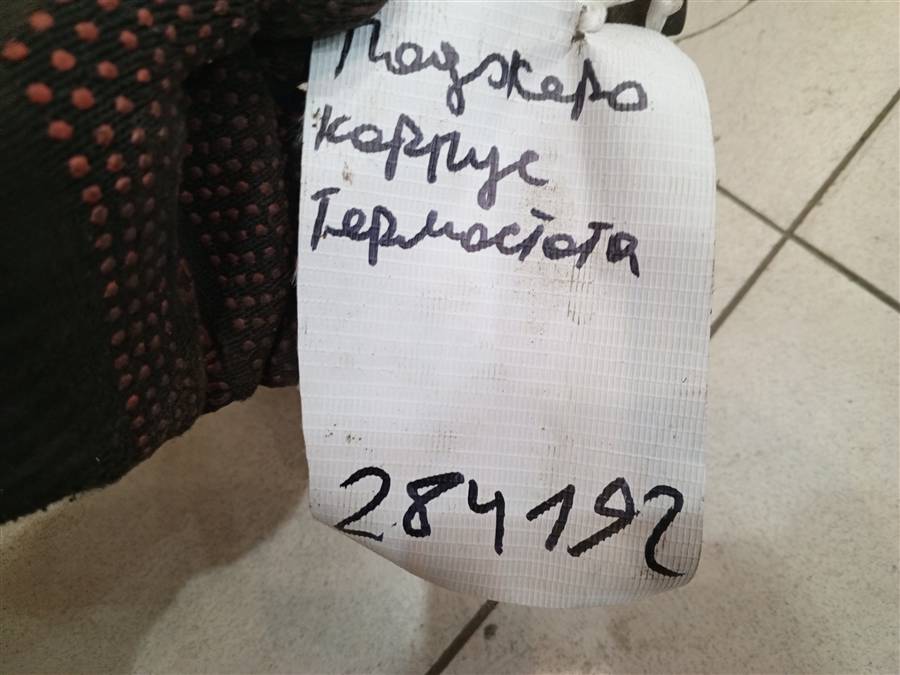 Паджеро
корпус
Термостата
284192